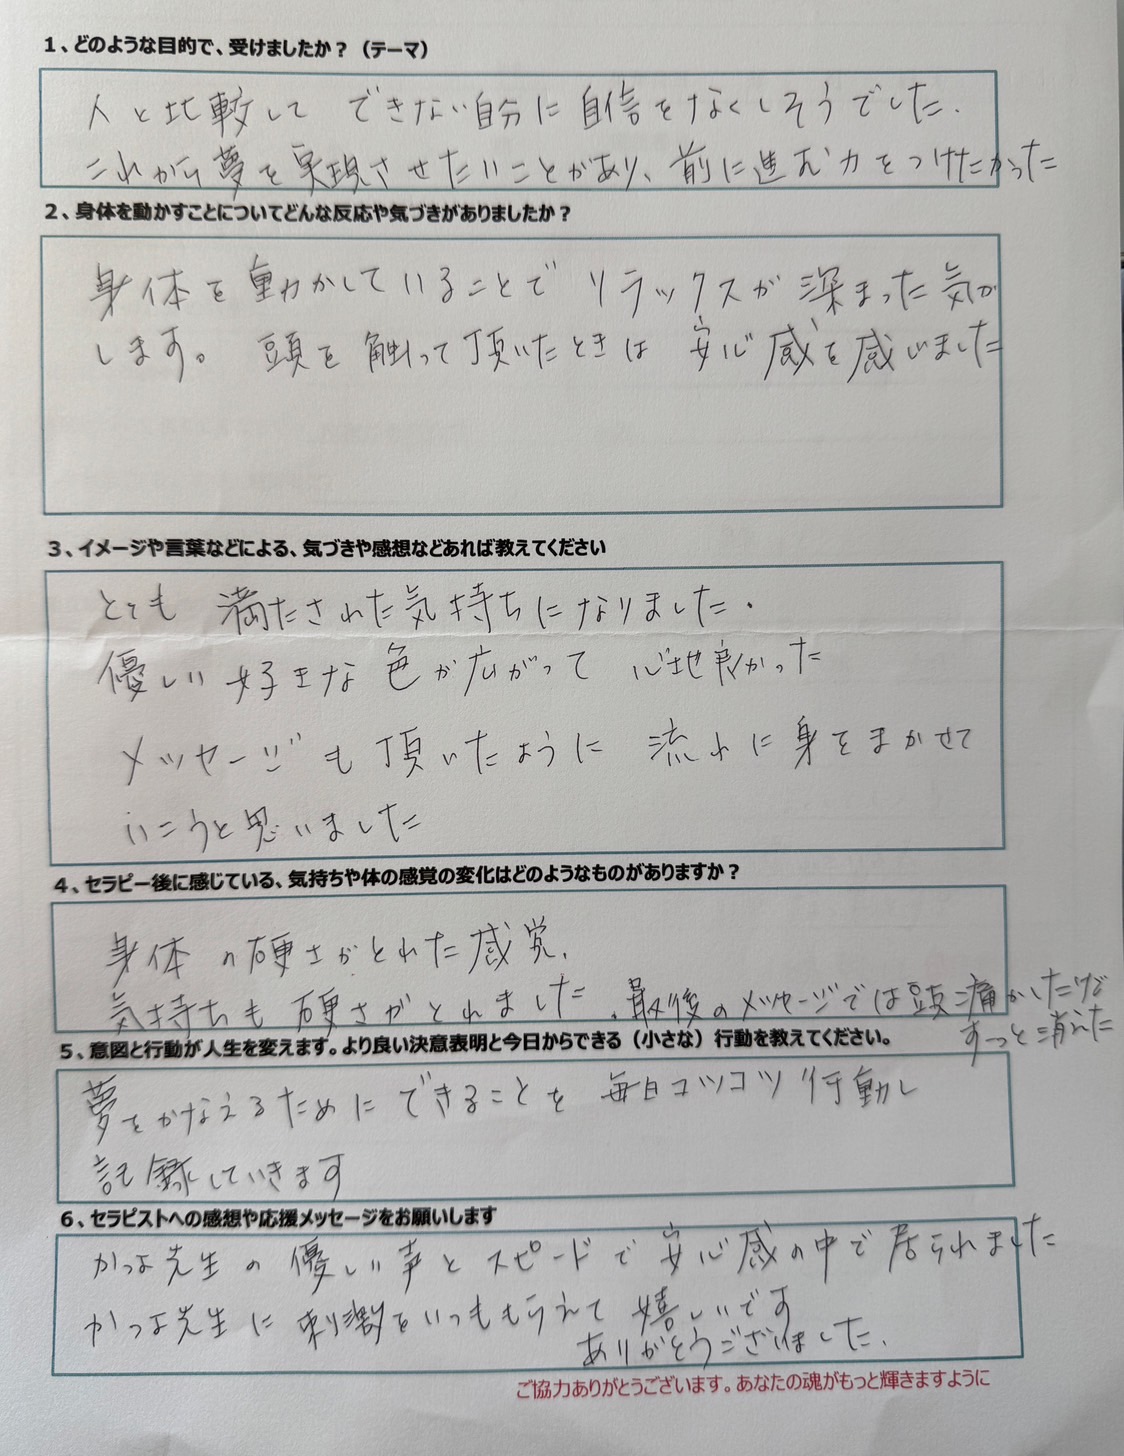 1、どのような目的で、受けましたか？（テーマ）
人と比較して できない自分に自信をなくしそうでした.
これから夢を実現させたいことがあり、前に進む力をつけたかった
2、身体を動かすことについてどんな反応や気づきがありましたか？
身体を動かしていることで リラックスが深まった気が
します。 頭を触って頂いたときは 安心感を感じました
3、イメージや言葉などによる、気づきや感想などあれば教えてください
とても 満たされた気持ちになりました.
優しい好きな色が広がって 心地良かった
メッセージも頂いたように 流れに身をまかせて
いこうと思いました
4、セラピー後に感じている、気持ちや体の感覚の変化はどのようなものがありますか？
身体の硬さがとれた感覚.
気持ちも硬さがとれました. 最後のメッセージでは頭痛がしたけど
すーっと消えた
5、意図と行動が人生を変えます。より良い決意表明と今日からできる（小さな）行動を教えてください。
夢をかなえるためにできることを 毎日コツコツ行動し
記録していきます
6、セラピストへの感想や応援メッセージをお願いします
かつよ先生の優しい声とスピードで安心感の中で居られました
かつよ先生に刺激をいつももらえて嬉しいです
ありがとうございました.
ご協力ありがとうございます。あなたの魂がもっと輝きますように